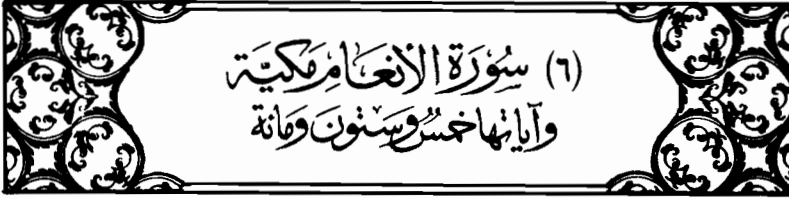 (٦) سُورَة الأنعَامِ مَكيَّة
وآياتها خمسٌ وَسِتّونَ وَمائة